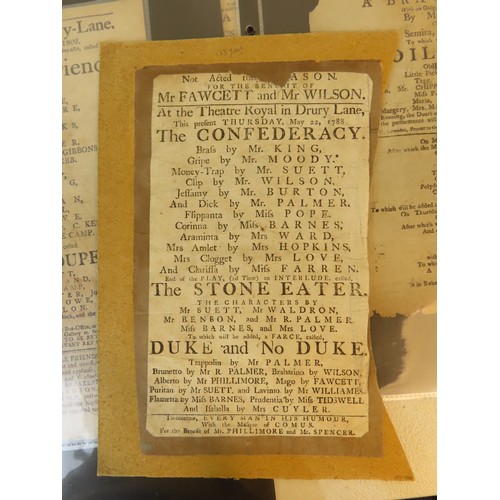 Not Acted this SEASON.
FOR THE BENEFIT OF
Mr FAWCETT and Mr WILSON.
At the Theatre Royal in Drury Lane,
This present THURSDAY, May 22, 1788
The CONFEDERACY.
Brass by Mr. KING,
Gripe by Mr. MOODY.
Money-Trap by Mr. SUETT,
Clip by Mr. WILSON,
Jessamy by Mr. BURTON,
And Dick by Mr. PALMER.
Flippanta by Miss POPE.
Corinna by Miss BARNES,
Araminta by Mrs WARD,
Mrs Amlet by Mrs HOPKINS,
Mrs Clogget by Mrs LOVE,
And Clarissa by Miss FARREN.
End of the PLAY, (1st Time) an INTERLUDE, called,
The STONE EATER.
THE CHARACTERS BY
Mr SUETT, Mr WALDRON,
Mr BENSON, and Mr R. PALMER.
Miss BARNES, and Mrs LOVE.
To which will be added, a FARCE, called,
DUKE and No DUKE.
Trappolin by Mr PALMER,
Brunetto by Mr R PALMER, Brabarino by WILSON,
Alberto by Mr PHILLIMORE, Mago by FAWCETT,
Puritan by Mr SUETT, and Lavinio by Mr WILLIAMES
Flametta by Miss BARNES, Prudentia by Miss TIDSWELL
And Isabella by Mrs CUYLER.
To-morrow, EVERY MAN IN HIS HUMOUR,
With the Masque of COMUS.
For the Benefit of Mr. PHILLIMORE and Mr. SPENCER.
y-Lane.
1807.
riend
GIBBONS
E CAMP.
OUPE
LOWE,
LON,
A BRA
By M
Semira,
To which
DIL
Little Pic
Tagg,
Mr. CHIPP
Miss F
Maria,
Margery, Mrs. M
To which will be added
On Thursd
After which
And